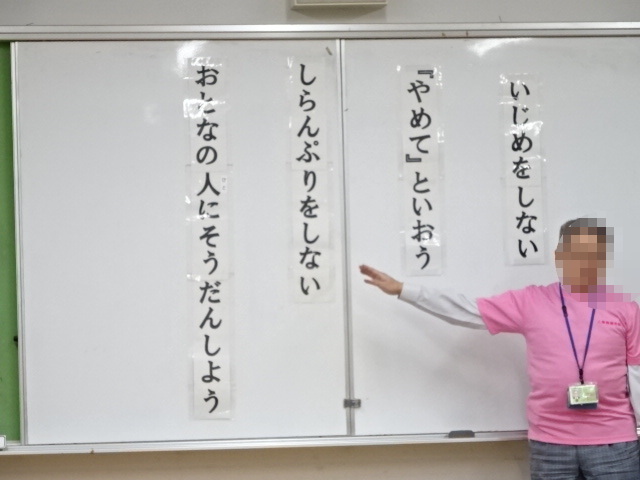 いじめをしない
『やめて』といおう
しらんぷりをしない
おとなの人にそうだんしよう